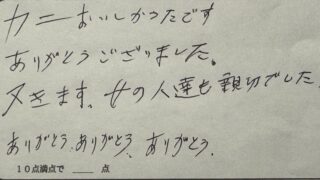 カニーおいしかったです
ありがとうございました。
又きます、女の人達も親切でした
ありがとう、ありがとう、ありがとう、
10点満点で ____ 点